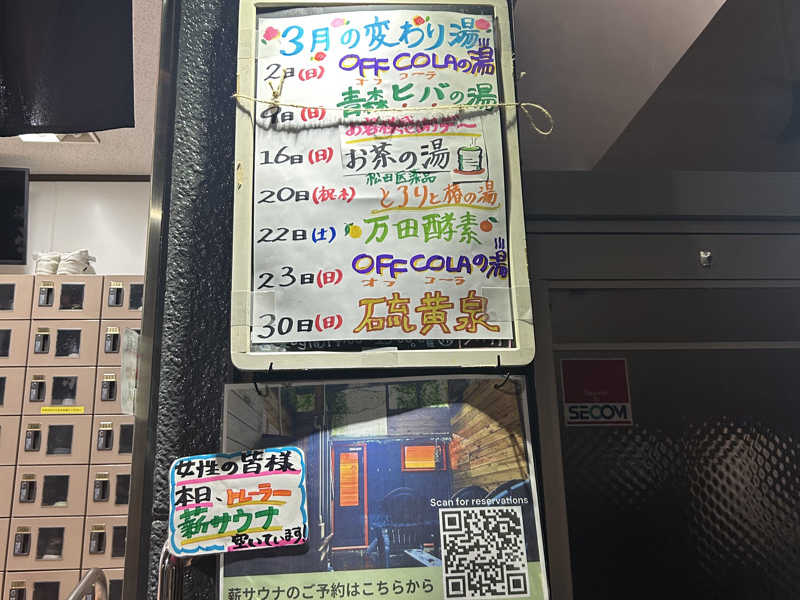 3月の変わり湯
2日(日) OFF COLAの湯
オフ コーラ
9日(日) 青森ヒバの湯
16日(日) お茶の湯
松田医薬品
20日(祝木) とろりと椿の湯
22日(土) 万田酵素
23日(日) OFF COLAの湯
オフ コーラ
30日(日) 硫黄泉
SECOM
女性の皆様
本日、トレーラー
薪サウナ
空いています!
Scan for reservations
薪サウナのご予約はこちらから